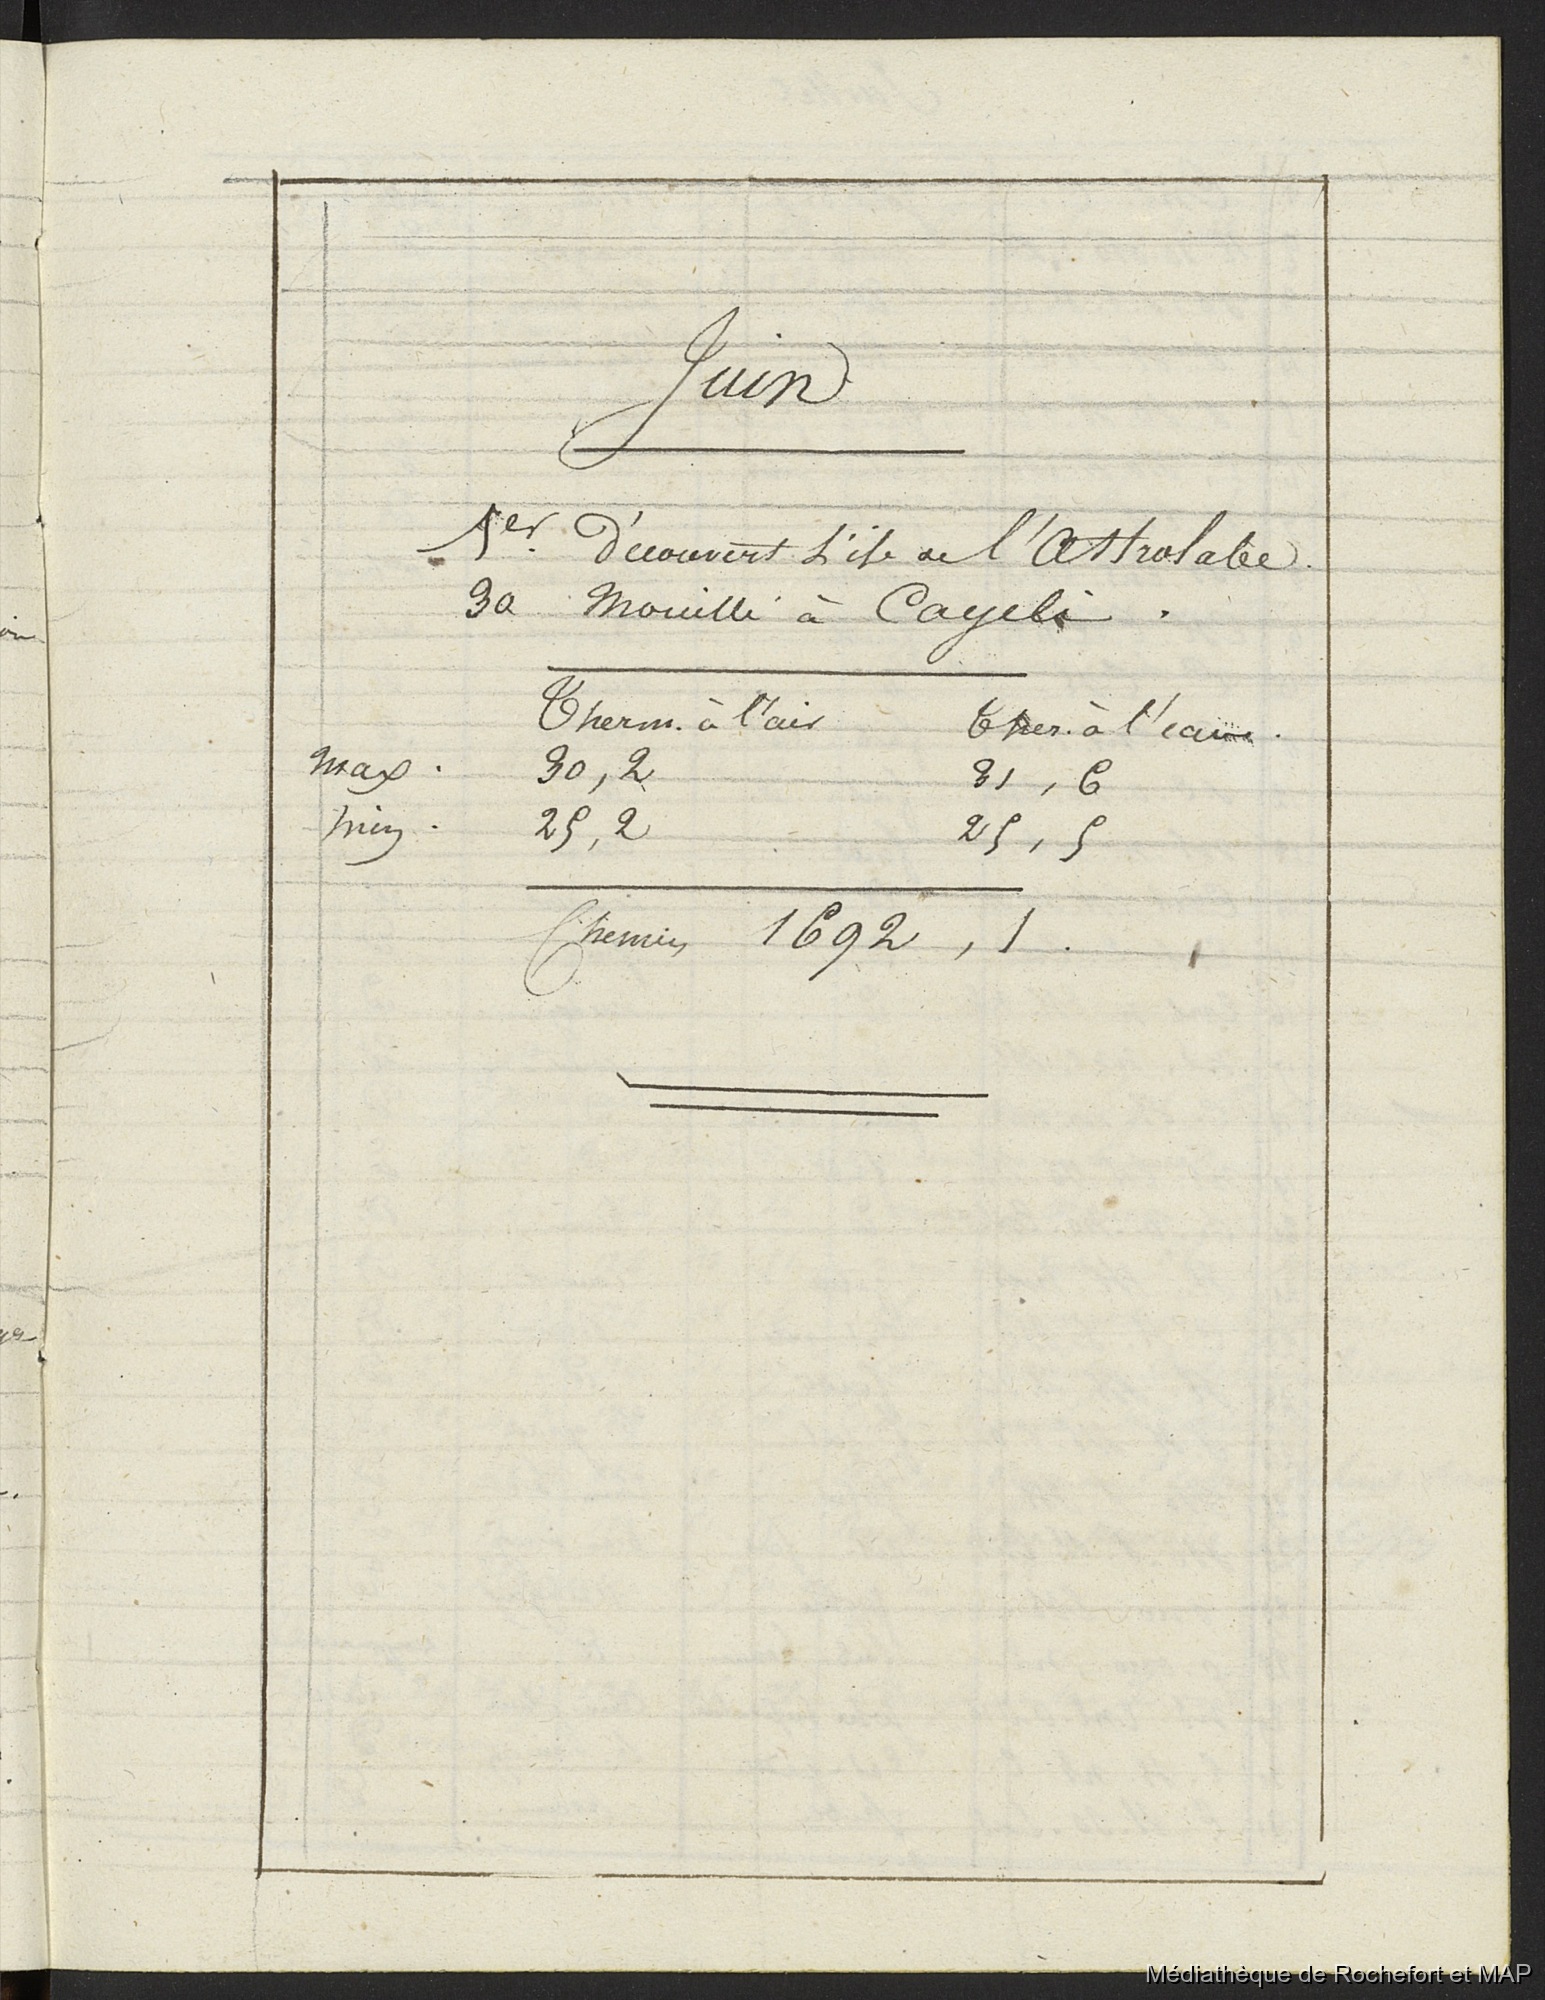 Juin
1er. Découvert L'île de l'Astrolabe.
30 Mouillé à Cayeli.
Therm. à l'air Ther. à l'eau.
Max. 30,2 31,6
Min. 25,2 25,5
Chemin 1692,1.
Médiathèque de Rochefort et MAP